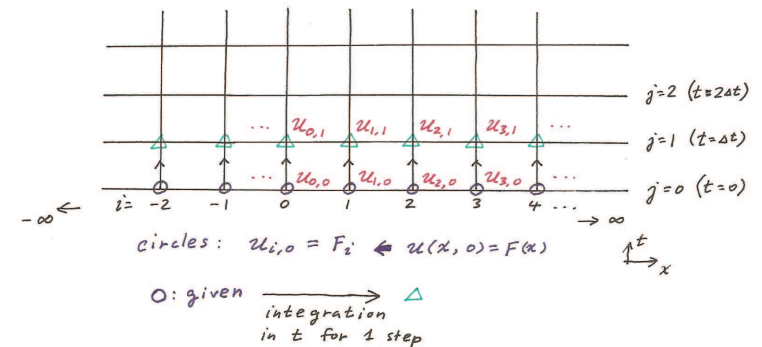 j=2 (t=2Δt)
... u0,1 u1,1 u2,1 u3,1 ...
j=1 (t=Δt)
... u0,0 u1,0 u2,0 u3,0 ...
j=0 (t=0)
-∞ ← i= -2 -1 0 1 2 3 4 ... → ∞
circles: ui,0 = Fi ← u(x, 0) = F(x)
t
x
O: given → △
integration
in t for 1 step